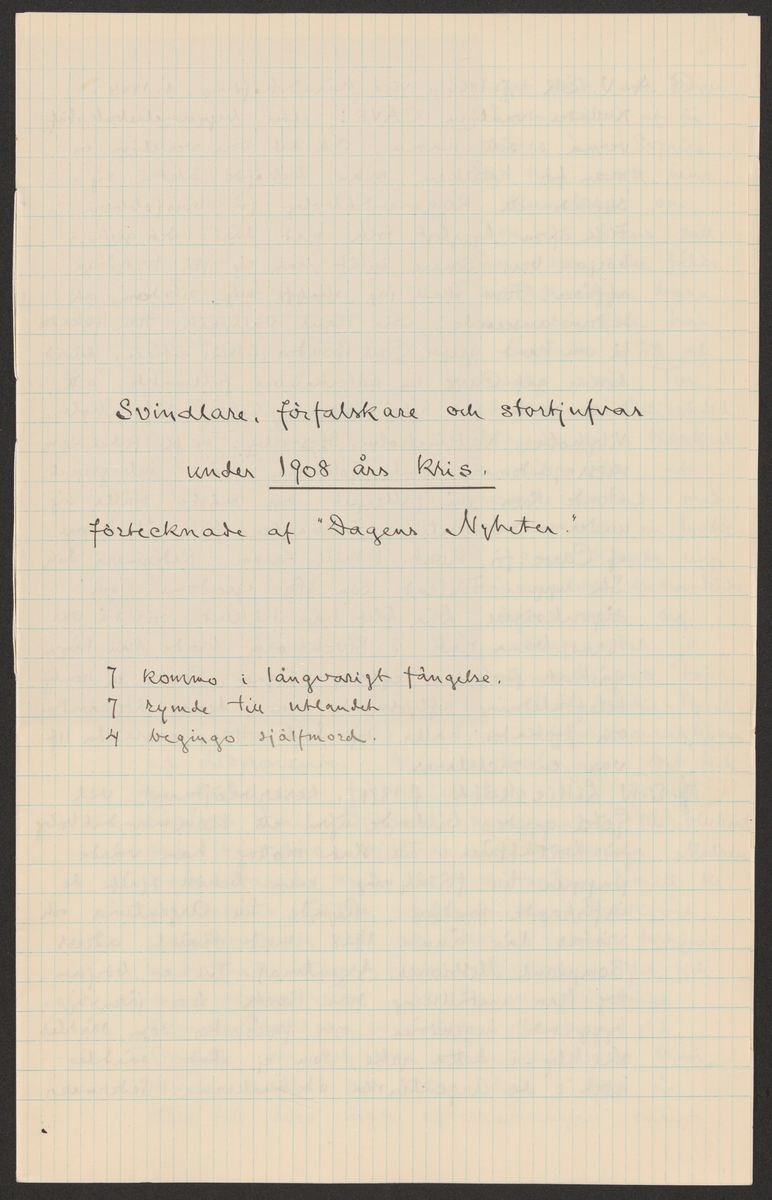 Svindlare, förfalskare och stortjufvar
under 1908 års kris.
förtecknade af "Dagens Nyheter."
7 kommo i långvarigt fängelse.
7 rymde till utlandet
4 begingo sjelfmord.